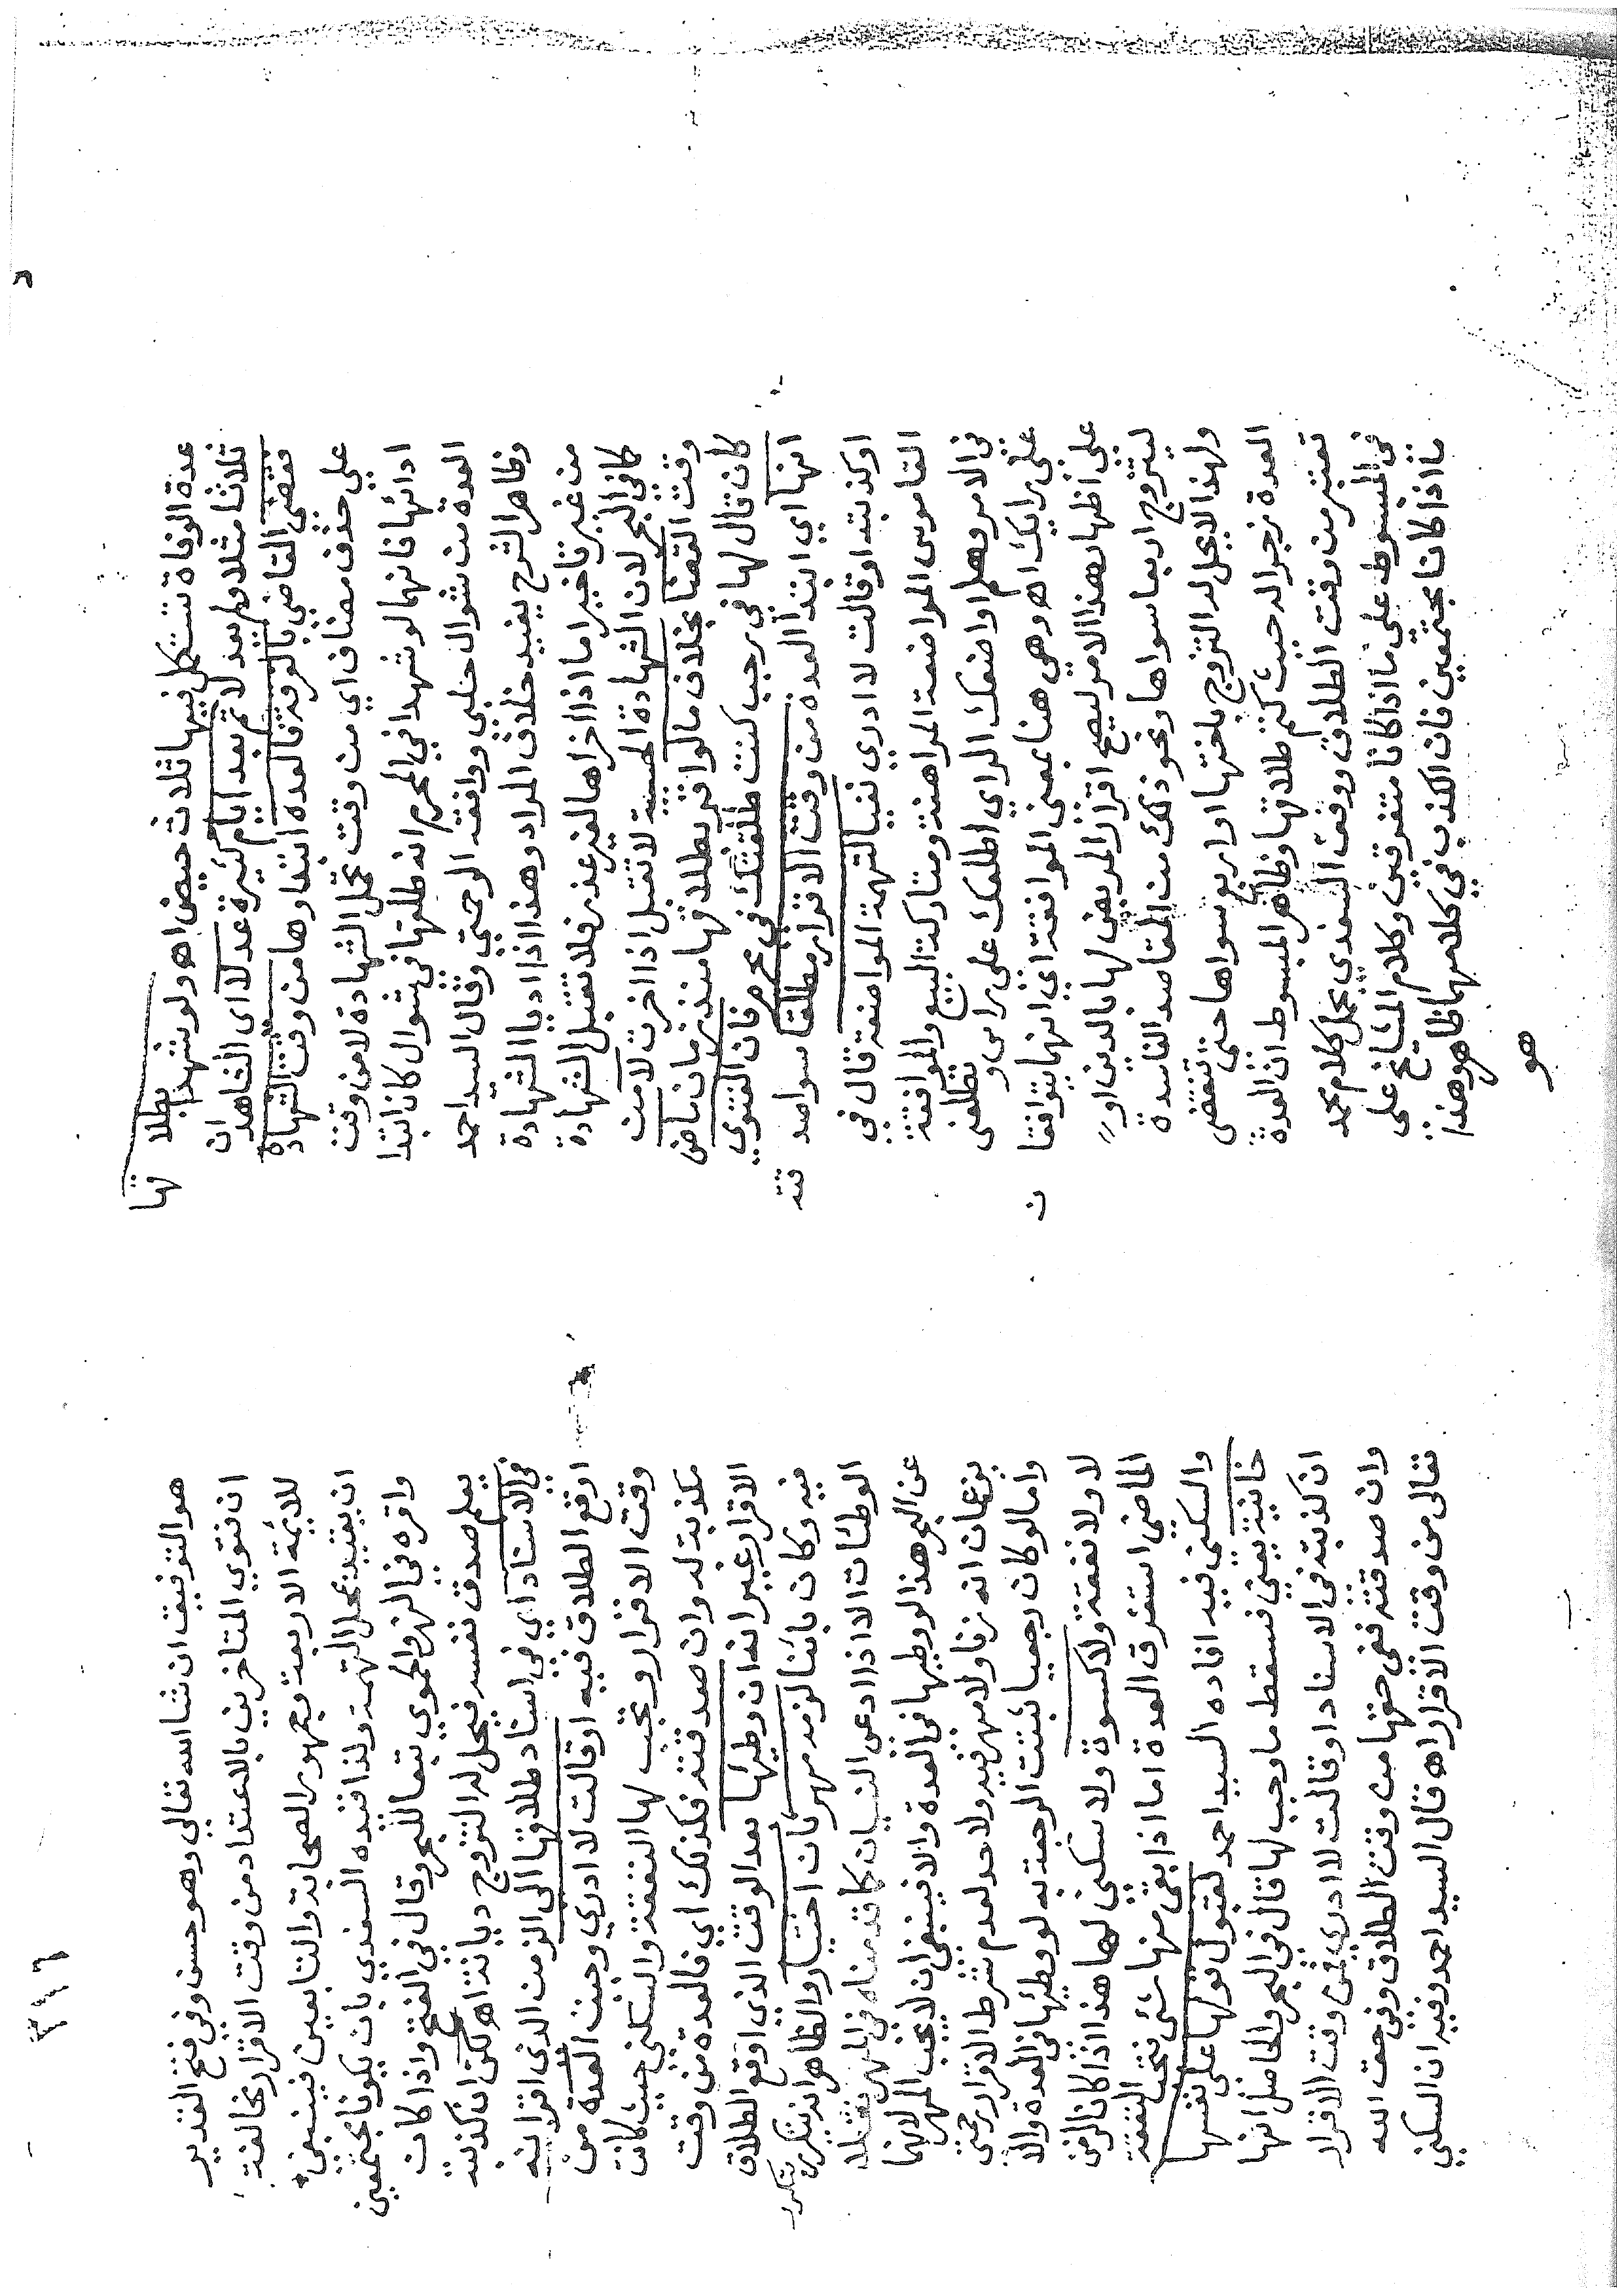 عدة الوفاة تستكمل فيها ثلاث حيض اه ولو شهدا بطلاقها
ثلاثا مثلا ولم يعد لا ثم بعد ايام كثيرة عدلا اى الشاهدان
فقضى القاضي بالفرقة فالعدة ابتداوها من وقت الشهادة
علي حذف مضاف اي من وقت تحمل الشهادة لا من وقت
ادائها فانهما لو شهدا في المحرم انه طلقها في شوال كان ابتدا
العدة من شوال حلبي ووافقه الرحمتي وقال السيد احمد
وظاهر الشرح يفيد خلاف المراد وهذا اذا اديا الشهادة
من غير تاخير اما اذا اخراها لغير عذر فلا تقبل الشهادة
كما في البحر لان الشهادة الحسبة لا تقبل اذا اخرت لا من
وقت القضا بخلاف ما لو اقر بطلاقها منذ زمان ماض
كان قال لها في رجب كنت طلقتك في محرم فان الفتوي
انها اي ابتدا العدة من وقت الاقرار مطلقا سوا صدقته
او كذبته او قالت لا ادري نفيا لتهمة المواضعة قال في
القاموس المواضعة المراهنة ومتاركة البيع والموافقة
في الامر وهلم اواضعك الراي اطلعك على راى وتطلعنى
على رايك اه وهي هنا بمعنى الموافقة اي انهما يتوافقان
على اظهار هذا الامر ليصح اقرار المريض لها بالدين او
ليتزوج اربعا سواها ونحو ذلك من المقاصد الفاسدة
ولهذا لا يحل له التزوج باختها او اربع سواها حتى تنقضى
العدة زجرا له حيث كتم طلاقها وظاهر المبسوط ان العدة
تعتبر من وقت الطلاق ووفق السغدي بحمل كلام محمد
في المبسوط على ما اذا كانا متفرقين وكلام المشايخ على
ما اذا كانا مجتمعين فان الكذب في كلامهما ظاهر وهذا
هو
٣١٦
هو التوفيق ان شا الله تعالي وهو حسن وفي فتح القدير
ان فتوي المتاخرين بالاعتداد من وقت الاقرار مخالفة
للايمة الاربعة وجمهور الصحابة والتابعين فينبغي
ان يقيد بمحل التهمة ولذا قيده السغدي بان يكونا مجتمعين
واقره في النهر والحموي تبعا للبحر وقال في الفتح واذا كان
يعلم صدق نفسه فيحل له التزوج ديانة اه لكن ان كذبته
في الاسناد اي في اسناد طلاقها الى الزمن الذى اقر انه
اوقع الطلاق فيه او قالت لا ادري وجبت العدة من
وقت الاقرار وتجب لها النفقة والسكني حيث كانت
مكذبة له وان صدقته فكذلك اي فالعدة من وقت
الاقرار غير انه ان وطيها بعد الوقت الذى اوقع الطلاق
فيه وكان بائنا لزمه مهر ثان اختيار والظاهر انه يتكرر بتكرر
الوطئات الا اذا ادعى النسيان كما قدمناه في المهر نقلا
عن البحر هذا لو وطيها في العدة والا فينبغى ان لا يجب المهر لانهما
يزعمان انه زنا ولا مهر فيه ولا حد لعدم شرط الاقرار رحمتي
واما لو كان رجعيا ثبتت الرجعة به لو وطئها في العدة والا
لا ولا نفقة ولا كسوة ولا سكني لها هذا اذا كان الزمن
الماضى استغرق العدة اما اذا بقى منها شئ تجب النفقة
والسكنى فيه افاده السيد احمد لقبول قولها على نفسها
خانية يعنى فسقط ما وجب لها قال في البحر والحاصل انها
ان كذبته في الاسناد او قالت لا ادري فمن وقت الاقرار
وان صدقته ففي حقها من وقت الطلاق وفي حق الله
تعالى من وقت الاقرار اه قال السيد احمد وفيه ان السكني